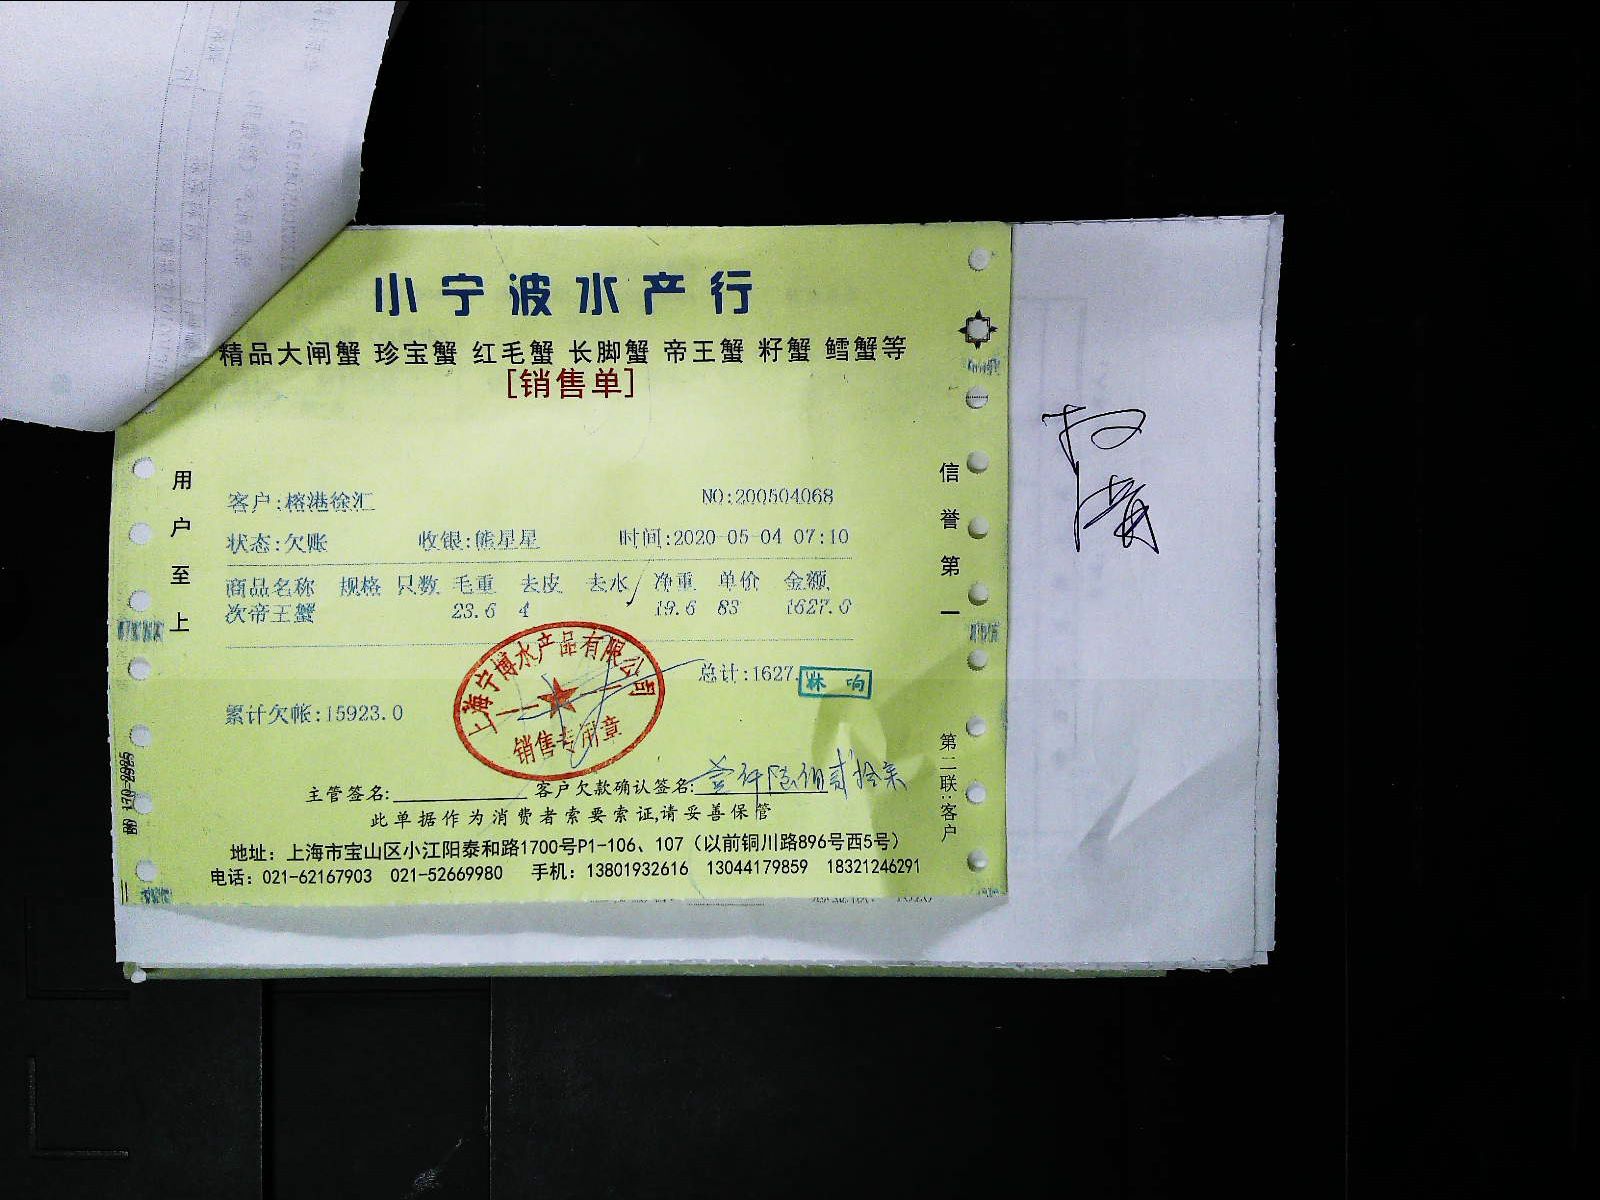 小宁波水产行
精品大闸蟹 珍宝蟹 红毛蟹 长脚蟹 帝王蟹 籽蟹 鳕蟹等
[销售单]
用户至上
信誉第一
客户:榕港徐汇 NO:200504068
状态:欠账 收银:熊星星 时间:2020-05-04 07:10
商品名称 规格 只数 毛重 去皮 去水 净重 单价 金额
次帝王蟹 23.6 4 19.6 83 1627.0
总计:1627.
林响
累计欠帐:15923.0
上海宁博水产品有限公司
销售专用章
主管签名: 客户欠款确认签名:壹仟陆佰贰拾柒
此单据作为消费者索要索证,请妥善保管
第二联:客户
地址：上海市宝山区小江阳泰和路1700号P1-106、107（以前铜川路896号西5号）
电话：021-62167903 021-52669980 手机：13801932616 13044179859 18321246291